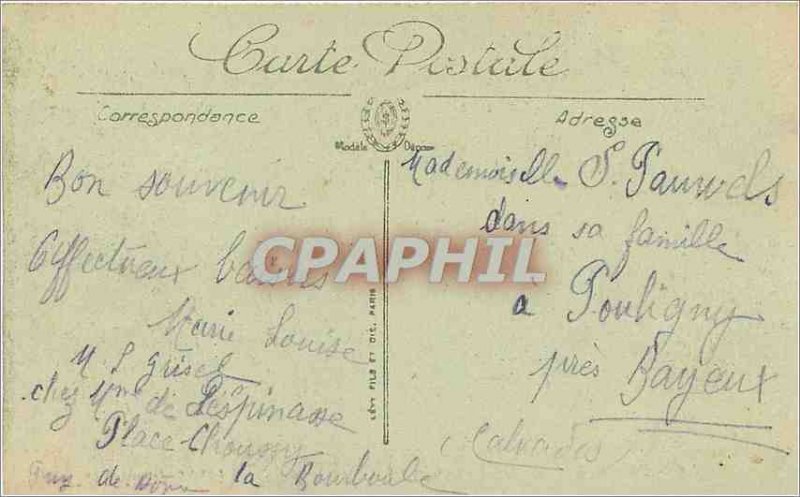 Carte Postale
Correspondance
Adresse
Modèle Déposé
Bon souvenir
Affectueux baisers
Marie Louise
M. L Grisel
chez Mme de Lespinasse
Place Choussy
Puy. de. Dôme la Bourboule
Mademoiselle S. Pauwels
dans sa famille
à Pouligny
près Bayeux
Calvados
LÉVY FILS ET CIE, PARIS
CPAPHIL